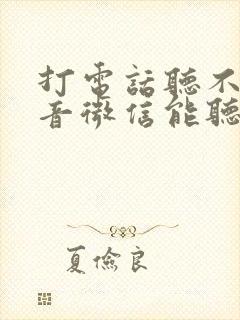 打電話聽不
音微信能聽
夏儉良